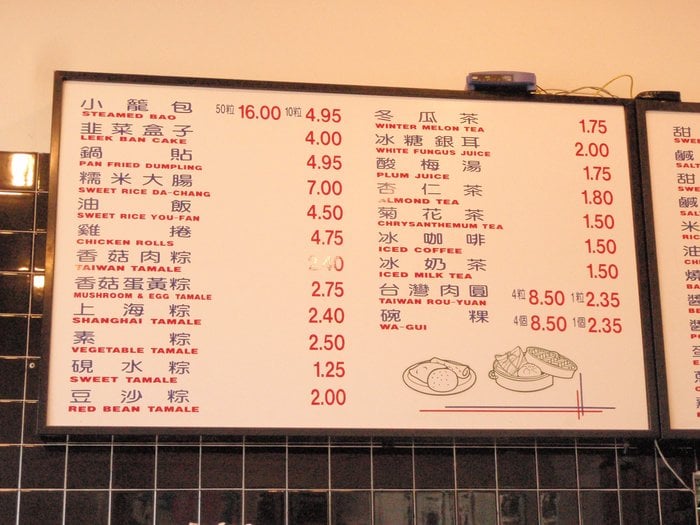 小籠包 50粒 16.00 10粒 4.95
STEAMED BAO
韭菜盒子 4.00
LEEK BAN CAKE
鍋貼 4.95
PAN FRIED DUMPLING
糯米大腸 7.00
SWEET RICE DA-CHANG
油飯 4.50
SWEET RICE YOU-FAN
雞捲 4.75
CHICKEN ROLLS
香菇肉粽 2.40
TAIWAN TAMALE
香菇蛋黃粽 2.75
MUSHROOM & EGG TAMALE
上海粽 2.40
SHANGHAI TAMALE
素粽 2.50
VEGETABLE TAMALE
硯水粽 1.25
SWEET TAMALE
豆沙粽 2.00
RED BEAN TAMALE
冬瓜茶 1.75
WINTER MELON TEA
冰糖銀耳 2.00
WHITE FUNGUS JUICE
酸梅湯 1.75
PLUM JUICE
杏仁茶 1.80
ALMOND TEA
菊花茶 1.50
CHRYSANTHEMUM TEA
冰咖啡 1.50
ICED COFFEE
冰奶茶 1.50
ICED MILK TEA
台灣肉圓 4粒 8.50 1粒 2.35
TAIWAN ROU-YUAN
碗粿 4個 8.50 1個 2.35
WA-GUI
甜
鹹
甜
鹹
米
油